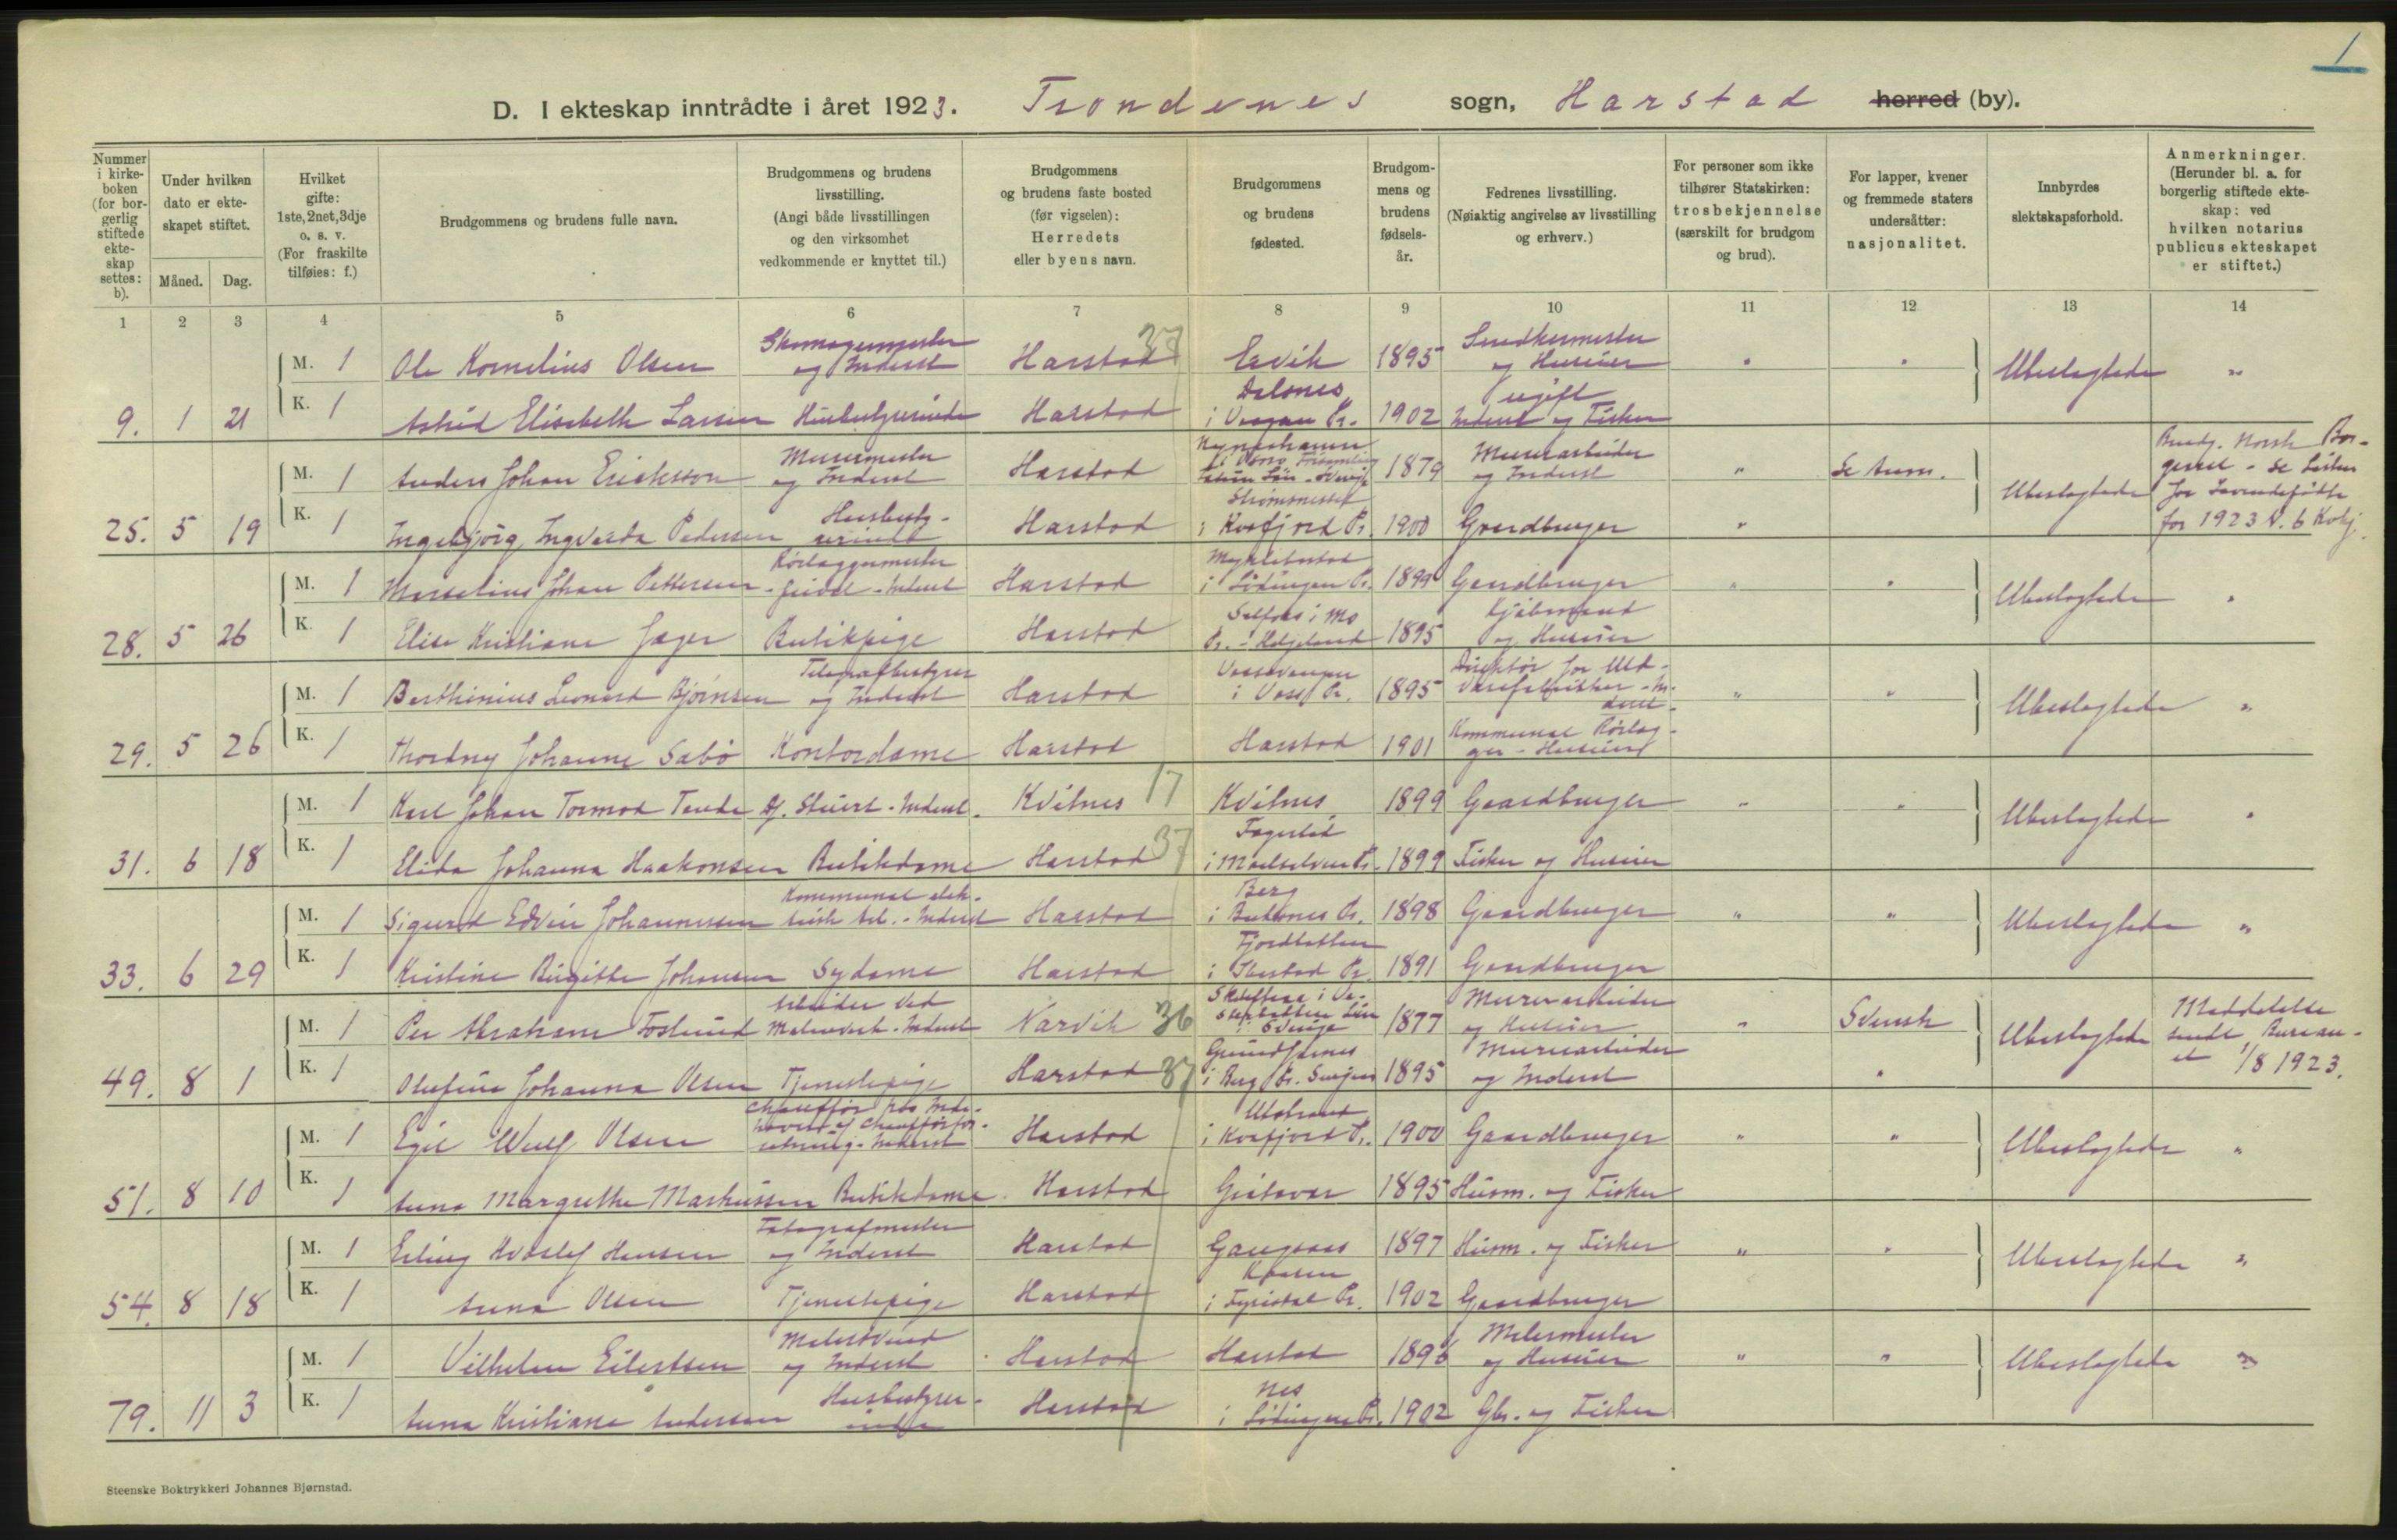 1
D. I ekteskap inntrådte i året 1923. Trondenes sogn, Harstad herred (by).
Nummer i kirkeboken (for borgerlig stiftede ekteskap settes: b).
Under hvilken dato er ekteskapet stiftet.
Måned. Dag.
Hvilket gifte: 1ste, 2net, 3dje o. s. v. (For fraskilte tilføies: f.)
Brudgommens og brudens fulle navn.
Brudgommens og brudens livsstilling. (Angi både livsstillingen og den virksomhet vedkommende er knyttet til.)
Brudgommens og brudens faste bosted (før vigselen): Herredets eller byens navn.
Brudgommens og brudens fødested.
Brudgommens og brudens fødselsår.
Fedrenes livsstilling. (Nøiaktig angivelse av livsstilling og erhverv.)
For personer som ikke tilhører Statskirken: trosbekjennelse (særskilt for brudgom og brud).
For lapper, kvener og fremmede staters undersåtter: nasjonalitet.
Innbyrdes slektskapsforhold.
Anmerkninger. (Herunder bl. a. for borgerlig stiftede ekteskap: ved hvilken notarius publicus ekteskapet er stiftet.)
1 2 3 4 5 6 7 8 9 10 11 12 13 14
M. 1 Ole Kornelius Olsen Skomagermester og Inderst Harstad 37 Ervik 1895 Smedkermester og Huseier " " Ubeslegtede "
9. 1 21 K. 1 Astrid Elisebeth Larsen Husbestyrerinde Harstad i Vaagan Pr. 1902 ugift Inderst og Fisker
M. 1 Anders Johan Eriksson Murermester og Inderst Harstad Nynäshamn 1879 Murerarbeider og Inderst " Se Anm. Ubeslegtede Brudg. Norsk Borgerret - Se Listen for Levendefødte for 1923 N. 6
25. 5 19 K. 1 Ingebjørg Ingvarda Pedersen Husbestyrerinde Harstad i Kvæfjord Pr. 1900 Gaardbruger "
M. 1 Marselius Johan Pettersen Rørlæggermester - Inderst Harstad i Lødingen Pr. 1899 Gaardbruger " " Ubeslegtede "
28. 5 26 K. 1 Elise Kristiane Jæger Butikpige Harstad Selfors i Mo Pr. - Helgeland 1895 Kjøbmand og Huseier
M. 1 Berthinius Leonard Bjørnsen Telegrafbestyrer og Inderst Harstad Vossevangen i Voss Pr. 1895 Direktør for Uldvarefabrikker - Inderst " " Ubeslegtede "
29. 5 26 K. 1 Thordny Johanne Sabø Kontordame Harstad Harstad 1901 Kommunal Rørlægger - Huseier
M. 1 Karl Johan Tormod Tande Stuert - Inderst. Kvitnes 17 Kvitnes 1899 Gaardbruger " " Ubeslegtede "
31. 6 18 K. 1 Elida Johanna Haakonsen Butikdame Harstad 37 Fagerlid i Maalselven Pr. 1899 Fisker og Huseier
M. 1 Sigurd Edvin Johannessen Kommunal elektrisk Arb. - Inderst Harstad Berg i Pr. 1898 Gaardbruger " " Ubeslegtede "
33. 6 29 K. 1 Kristine Birgitte Johansen Sydame Harstad Fjordbotten i Ibestad Pr. 1891 Gaardbruger
M. 1 Per Abraham Foslund Arbeider ved Malmverk - Inderst Narvik 36 Skelleftea i Vesterbotten Län i Sverige 1877 Murerarbeider og Huseier " Svensk Ubeslegtede Meddelelse sendt Bureauet 1/8 1923.
49. 8 1 K. 1 Olufine Johanna Olsen Tjenestepige Harstad 37 i Berg Pr. Senjen 1895 Murerarbeider og Inderst "
M. 1 Egil Wulf Olsen Chauffør hos Indehaver af Chaufførforretning - Inderst Harstad i Kvæfjord Pr. 1900 Gaardbruger " " Ubeslegtede "
51. 8 10 K. 1 Anna Margrethe Markussen Butikdame Harstad Grøtavær 1895 Husm. og Fisker
M. 1 Erling Hvaslef Hansen Fotografmester og Inderst Harstad Gangsaas 1897 Husm. og Fisker " " Ubeslegtede "
54. 8 18 K. 1 Anna Olsen Tjenestepige Harstad i Pr. 1902 Gaardbruger
M. 1 Vilhelm Eilertsen Malersvend og Inderst Harstad Harstad 1896 Malermester og Huseier " " Ubeslegtede "
79. 11 3 K. 1 Anna Kristiane Andersen Husbestyrerinde Harstad Nes i Lødingen Pr. 1902 Gbr. og Fisker
Steenske Boktrykkeri Johannes Bjørnstad.